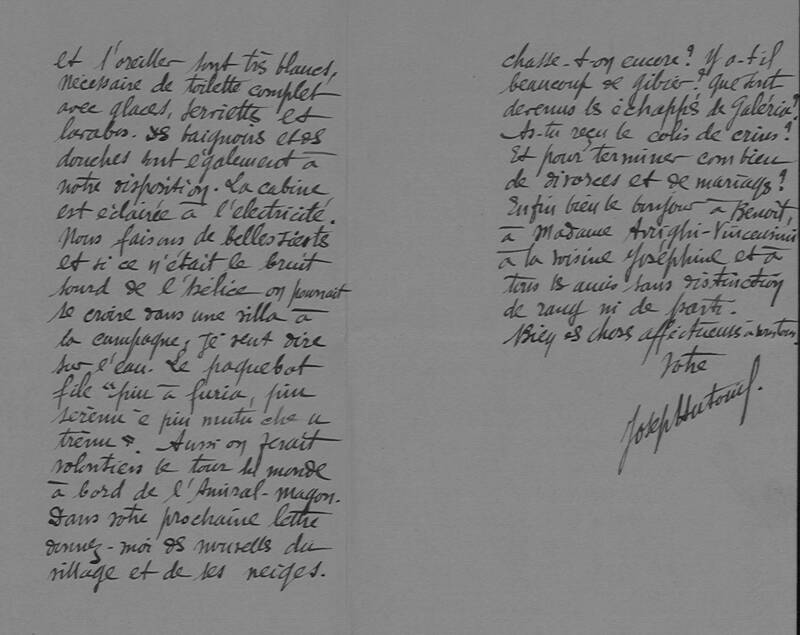 et l'oreiller sont très blancs,
nécessaire de toilette complet
avec glaces, serviettes et
lavabos. Des baignoirs et des
douches sont également à
notre disposition. La cabine
est éclairée à l'électricité.
Nous faisons de belles siestes
et si ce n'était le bruit
sourd de l'hélice on pourrait
se croire dans une villa à
la campagne, je veux dire
sur l'eau. Le paquebot
file "piu à furia, piu
serenu e piu mutu che u
trenu". Aussi on ferait
volontiers le tour du monde
à bord de l'Amiral-Magon.
Dans votre prochaine lettre
donnez-moi des nouvelles du
village et de ses neiges.
chasse-t-on encore? Y a-t-il
beaucoup de gibier? que sont
devenus les échappés de Galéria?
As-tu reçu le colis de crins?
Et pour terminer combien
de divorces et de mariages?
Enfin bien le bonjour à Benoît,
à Madame Arrighi-Vincensini
à la voisine Joséphine et à
tous les amis sans distinction
de rang ni de parti.
Bien des choses affectueuses à vous tous.
Votre
Joseph